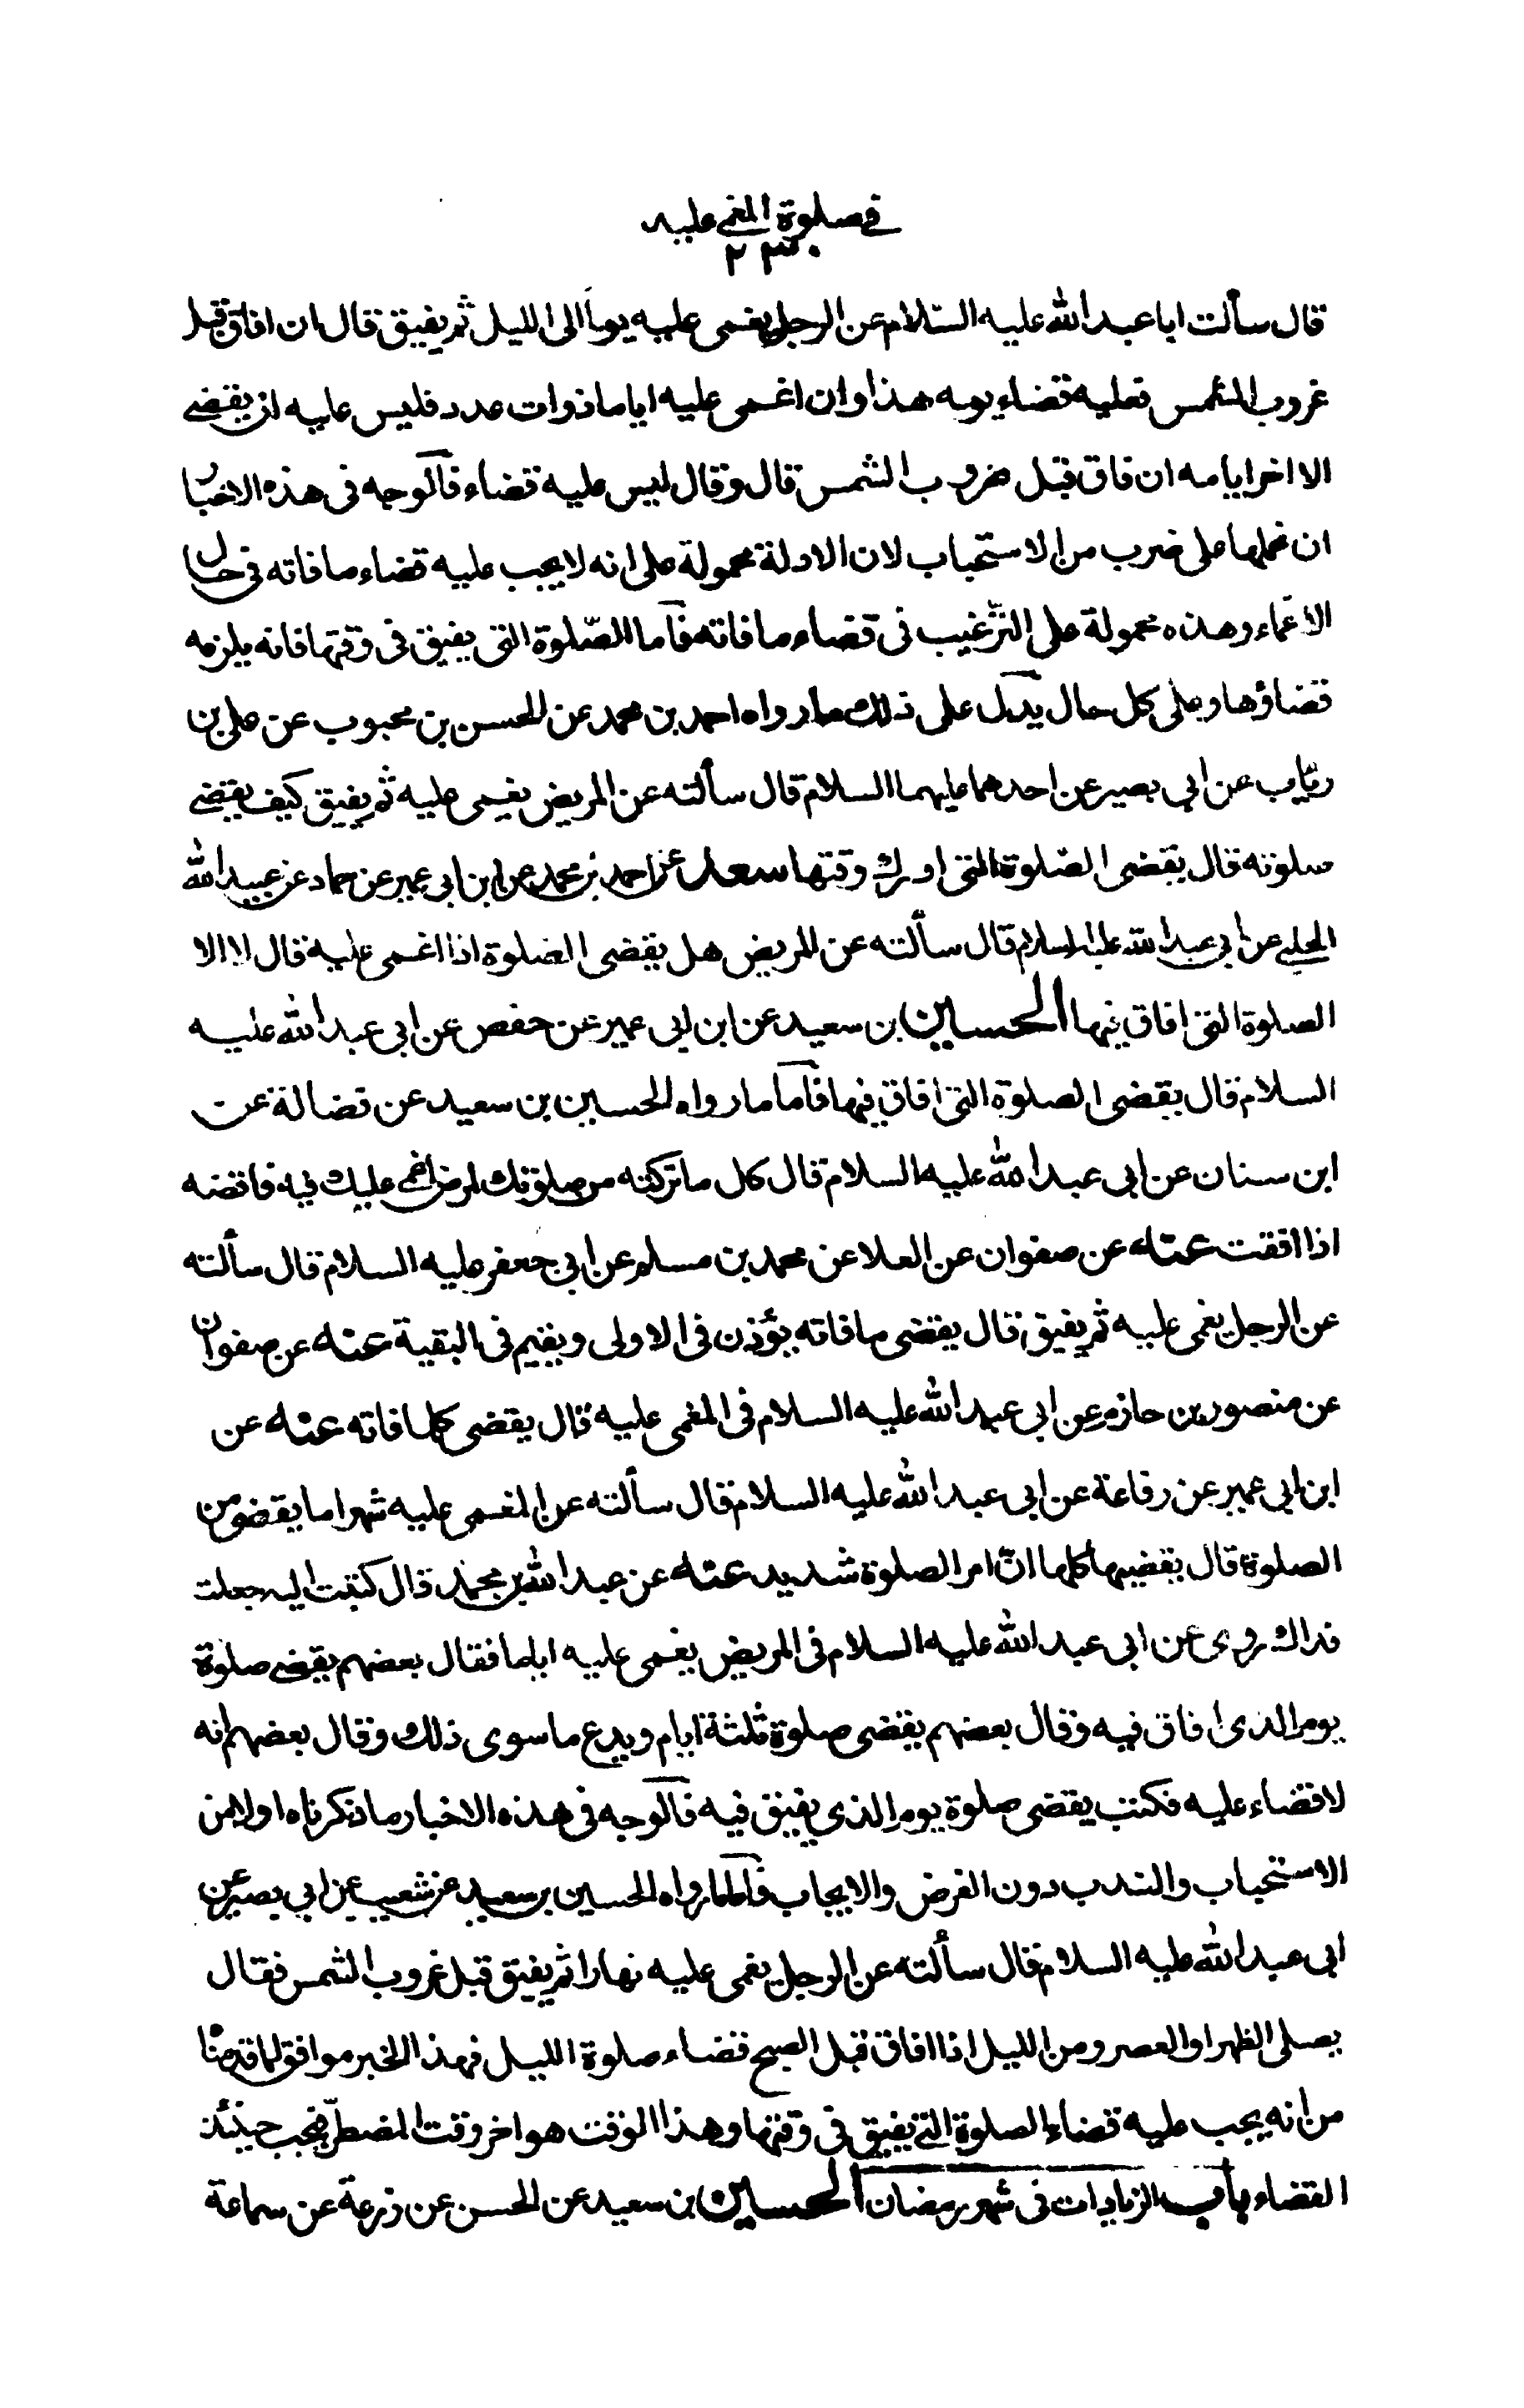 في صلوة المغمى عليه
٢٣٠
قال سألت ابا عبد الله عليه السّلام عن الرجل يغمى عليه يوماً الى الليل ثم يفيق قال ان افاق قبل
غروب الشمس فعليه قضاء يومه هذا وان اغمى عليه اياما ذوات عدد فليس عليه ان يقضى
الا اخر ايامه ان فاق قبل غروب الشمس قال وقال ليس عليه قضاء فالوجه فى هذه الاخبار
ان نحملها على ضرب من الاستحباب لان الادلة محمولة على انه لا يجب عليه قضاء ما فاته فى حال
الاغماء وهذه محمولة على الترّغيب فى قضاء ما فاته فاما الصّلوة التى يفيق فى وقتها فانه يلزمه
قضاؤها وعلى كل حال يدل على ذلك ما رواه احمد بن محمد عن الحسن بن محبوب عن على بن
رياب عن ابي بصير عن احدهما عليهما السلام قال سألته عن المريض يغمى عليه ثم يفيق كيف يقضى
صلوته قال يقضى الصّلوة التى ادرك وقتها سعد عن احمد بن محمد عن ابن ابى عمير عن حماد عن عبيد الله
الحلبى عن ابى عبد الله عليه السلام قال سألته عن المريض هل يقضى الصّلوة اذا اغمى عليه قال لا الا
الصلوة التى افاق فيها الحسين بن سعيد عن ابن ابى عمير عن حفص عن ابى عبد الله عليه
السلام قال يقضى الصلوة التى افاق فيها فاما ما رواه الحسين بن سعيد عن فضالة عن
ابن سنان عن ابى عبد الله عليه السلام قال كل ما تركته من صلوتك لمرض اغمى عليك فيه فاقضه
اذا افقت عنه عن صفوان عن العلا عن محمد بن مسلم عن ابى جعفر عليه السلام قال سألته
عن الرجل يغمى عليه ثم يفيق قال يقضى ما فاته يؤذن فى الاولى ويقيم فى البقية عنه عن صفوان
عن منصور بن حازم عن ابى عبد الله عليه السلام فى المغمى عليه قال يقضى كلما فاته عنه عن
ابن ابى عمير عن رفاعة عن ابى عبد الله عليه السلام قال سألته عن المغمى عليه شهرا ما يقضى من
الصلوة قال يقضيها كلها انّ امر الصلوة شديد عنه عن عبد الله بن محمد قال كتبت اليه جعلت
فداك روى عن ابى عبد الله عليه السلام فى المريض يغمى عليه اياما فقال بعضهم يقضى صلوة
يوم الذى افاق فيه وقال بعضهم يقضى صلوة ثلثة ايام ويدع ما سوى ذلك وقال بعضهم انه
لا قضاء عليه فكتب يقضى صلوة يوم الذي يفيق فيه فالوجه فى هذه الاخبار ما ذكرناه اولا من
الاستحباب والندب دون الفرض والايجاب فاما ما رواه الحسين بن سعيد عن شعيب عن ابى بصير عن
ابى عبد الله عليه السلام قال سألته عن الرجل يغمى عليه نهارا ثم يفيق قبل غروب الشمس فقال
يصلى الظهر او العصر ومن الليل اذا افاق قبل الصبح قضاء صلوة الليل فهذا الخبر موافق لما قدمنا
من انه يجب عليه قضاء الصلوة التى يفيق فى وقتها وهذا الوقت هو اخر وقت المضطرّ فيجب حينئذ
القضاء باب الزيادات فى شهر رمضان الحسين بن سعيد عن الحسن عن زرعة عن سماعة